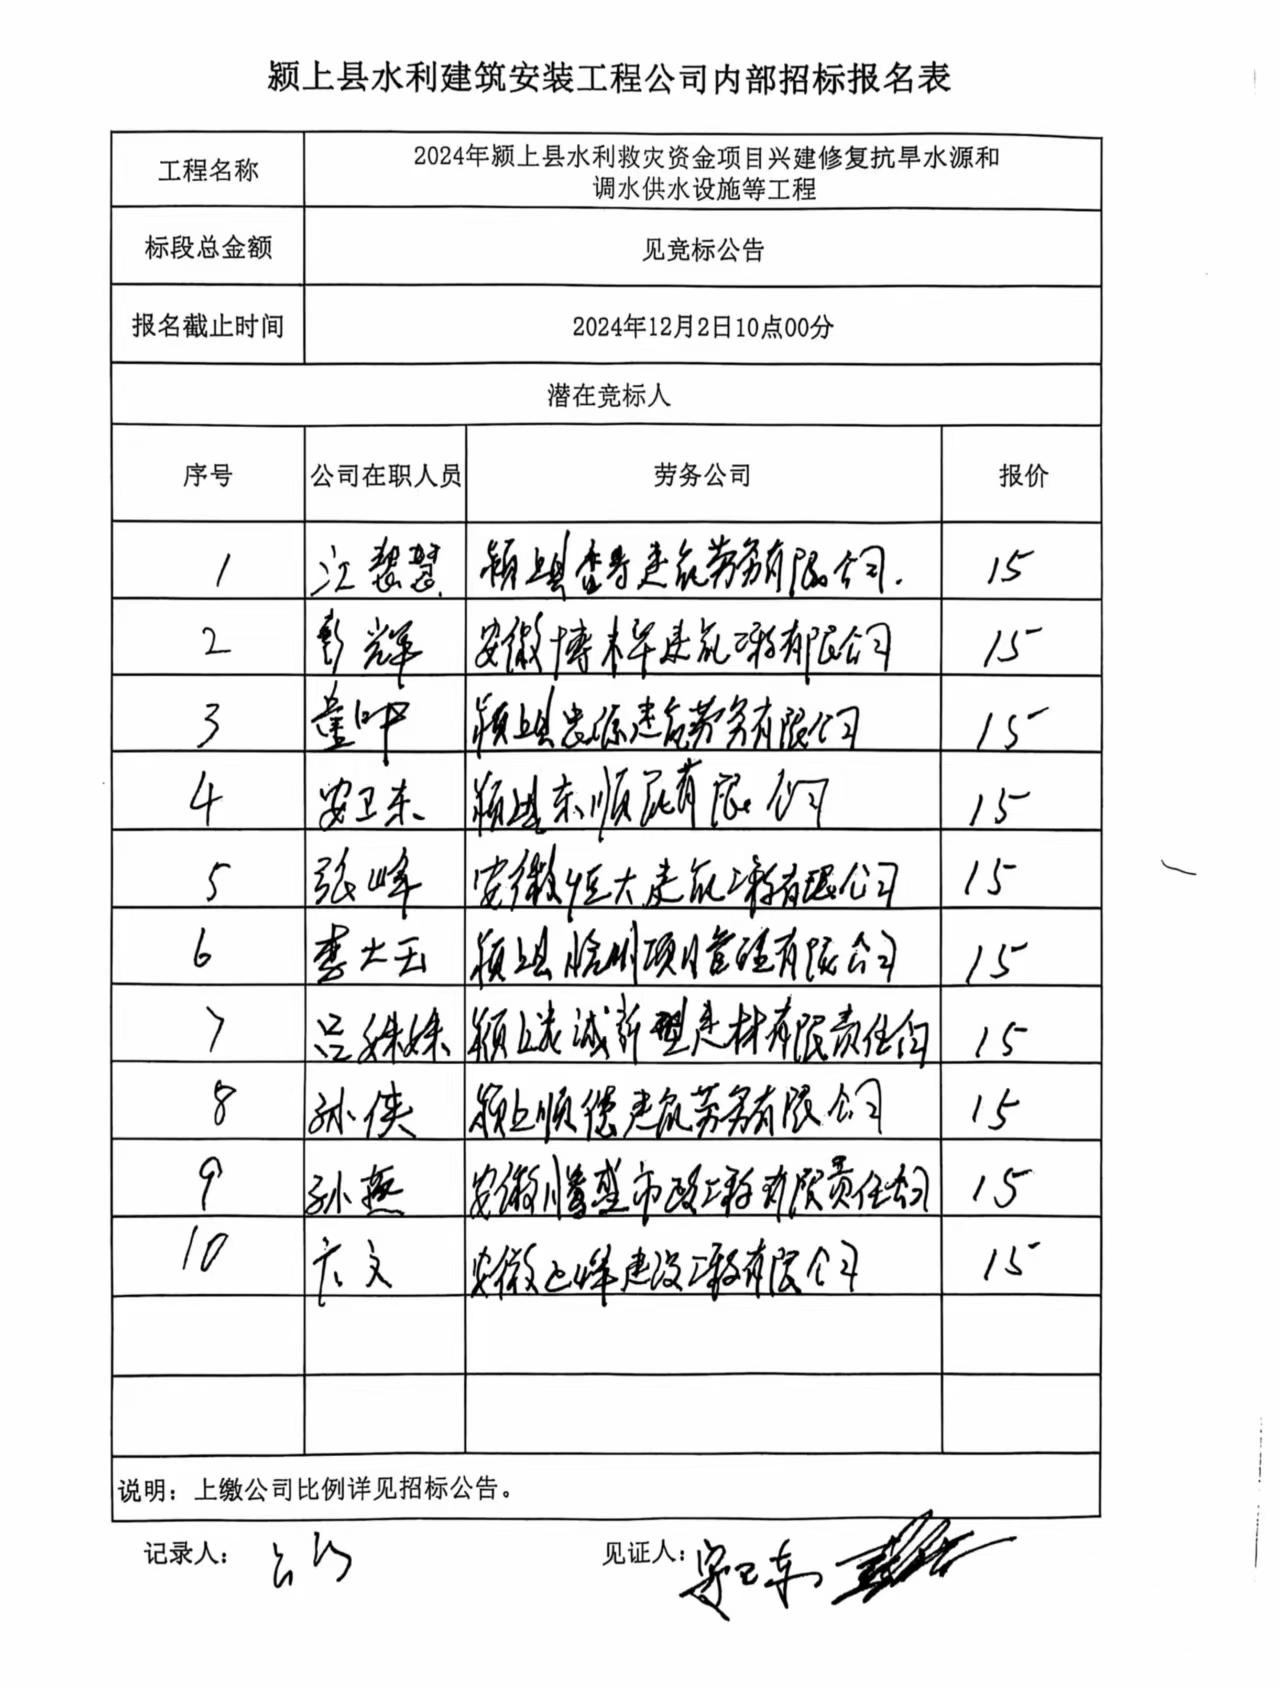 颍上县水利建筑安装工程公司内部招标报名表
工程名称 2024年颍上县水利救灾资金项目兴建修复抗旱水源和
调水供水设施等工程
标段总金额 见竞标公告
报名截止时间 2024年12月2日10点00分
潜在竞标人
序号 公司在职人员 劳务公司 报价
1 江慧慧 颍上县 建筑劳务有限公司. 15
2 彭辉 安徽博 建筑工程有限公司 15
3 童叶 颍上县忠源建筑劳务有限公司 15
4 安卫东 颍上县东顺 有限公司 15
5 张峰 安徽恒大建筑工程有限公司 15
6 李大云 颍上县 项目管理有限公司 15
7 吕姝姝 颍上 诚新型建材有限责任公司 15
8 孙侠 颍上顺德建筑劳务有限公司 15
9 孙燕 安徽 市政工程有限责任公司 15
10 文 安徽 峰建设工程有限公司 15
说明：上缴公司比例详见招标公告。
记录人： 见证人：安卫东